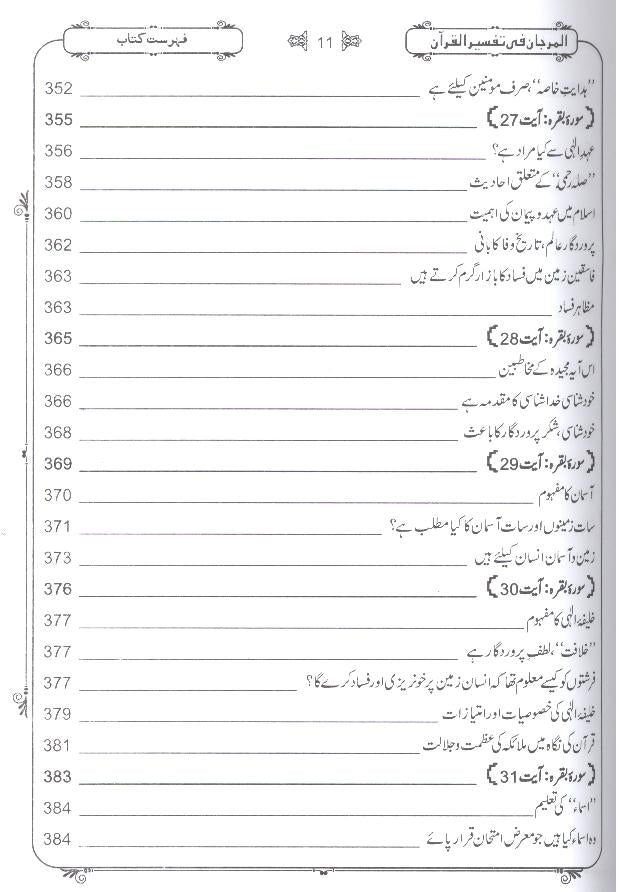 المرجان فی تفسیر القرآن 11 فہرست کتاب
”ہدایتِ خاصہ“، صرف مومنین کیلئے ہے 352
﴿سورۂ بقرہ: آیت 27﴾ 355
عہدِ الٰہی سے کیا مراد ہے؟ 356
”صلہ رحمی“ کے متعلق احادیث 358
اسلام میں عہد و پیمان کی اہمیت 360
پروردگارِ عالم، تاریخِ وفا کا بانی 362
فاسقین زمین میں فساد کا بازار گرم کرتے ہیں 363
مظاہر فساد 363
﴿سورۂ بقرہ: آیت 28﴾ 365
اس آیہ مجیدہ کے مخاطبین 366
خود شناسی خدا شناسی کا مقدمہ ہے 366
خود شناسی، شکر پروردگار کا باعث 368
﴿سورۂ بقرہ: آیت 29﴾ 369
آسمان کا مفہوم 370
سات زمینوں اور سات آسمان کا کیا مطلب ہے؟ 371
زمین و آسمان انسان کیلئے ہیں 373
﴿سورۂ بقرہ: آیت 30﴾ 376
خلیفۂ الٰہی کا مفہوم 377
”خلافت“، لطفِ پروردگار ہے 377
فرشتوں کو کیسے معلوم تھا کہ انسان زمین پر خونریزی اور فساد کرے گا؟ 377
خلیفۂ الٰہی کی خصوصیات اور امتیازات 379
قرآن کی نگاہ میں ملائکہ کی عظمت و جلالت 381
﴿سورۂ بقرہ: آیت 31﴾ 383
”اسماء“ کی تعلیم 384
وہ اسماء کیا ہیں جو معرضِ امتحان قرار پائے 384